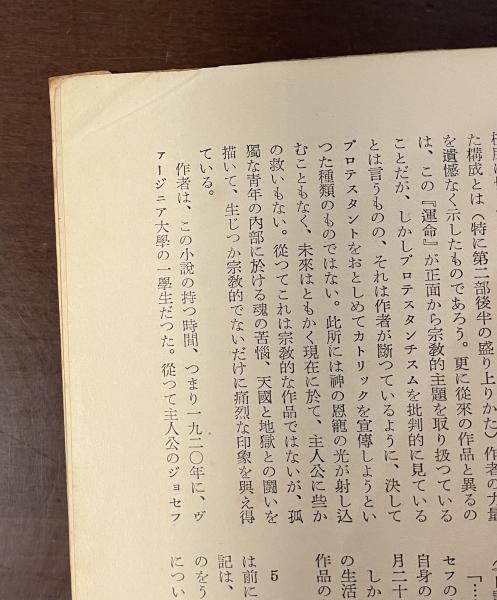 た構成とは(特に第二部後半の盛り上りかた)作者の力量
を遺憾なく示したものであろう。更に從來の作品と異るの
は、この『運命』が正面から宗敎的主題を取り扱つている
ことだが、しかしプロテスタンチスムを批判的に見ている
とは言うものの、それは作者が斷つているように、決して
プロテスタントをおとしめてカトリックを宣傳しようとい
つた種類のものではない。此所には神の恩寵の光が射し込
むこともなく、未來はともかく現在に於て、主人公に些か
の救いもない。從つてこれは宗敎的な作品ではないが、孤
獨な靑年の內部に於ける魂の苦惱、天國と地獄との鬪いを
描いて、生じつか宗敎的でないだけに痛烈な印象を與え得
ている。
作者は、この小說の持つ時間、つまり一九二〇年に、ヴ
ァージニア大學の一學生だつた。從つて主人公のジョセフ
「…
セフの
自身の
月二十
しか
の生活
作品の
5
は前に
記は、
のをう
につい